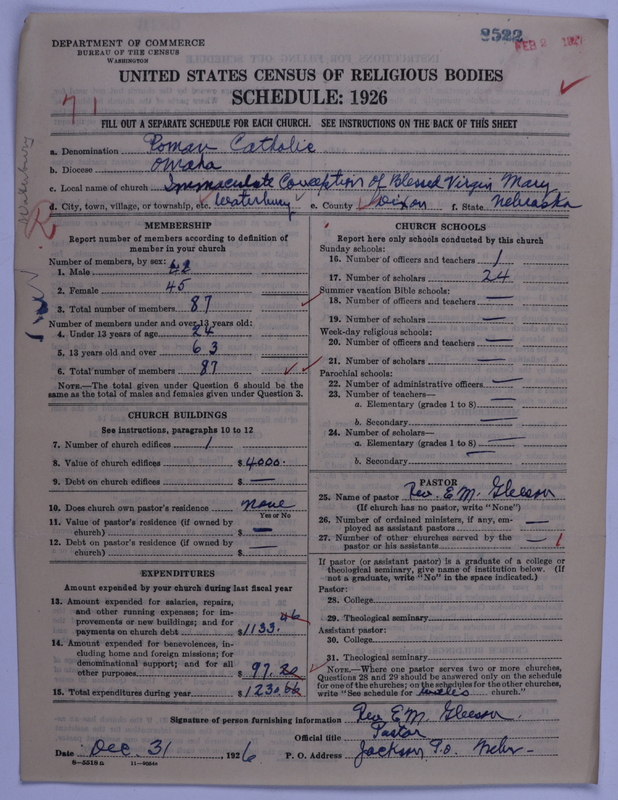 9522
FEB 2 1927
DEPARTMENT OF COMMERCE
BUREAU OF THE CENSUS
WASHINGTON
UNITED STATES CENSUS OF RELIGIOUS BODIES
SCHEDULE: 1926
71
FILL OUT A SEPARATE SCHEDULE FOR EACH CHURCH. SEE INSTRUCTIONS ON THE BACK OF THIS SHEET
a. Denomination Roman Catholic
b. Diocese Omaha
c. Local name of church Immaculate Conception Of Blessed Virgin Mary
d. City, town, village, or township, etc. Waterbury e. County Dixon f. State Nebraska
Waterbury
R
MEMBERSHIP
Report number of members according to definition of member in your church
Number of members, by sex:
1. Male 42
2. Female 45
3. Total number of members 87
Number of members under and over 13 years old:
4. Under 13 years of age 24
5. 13 years old and over 63
6. Total number of members 87
NOTE.—The total given under Question 6 should be the
same as the total of males and females given under Question 3.
CHURCH BUILDINGS
See instructions, paragraphs 10 to 12
7. Number of church edifices 1
8. Value of church edifices $ 4000.
9. Debt on church edifices $ —
10. Does church own pastor's residence none
Yes or No
11. Value of pastor's residence (if owned by
church) $ —
12. Debt on pastor's residence (if owned by
church) $ —
EXPENDITURES
Amount expended by your church during last fiscal year
13. Amount expended for salaries, repairs,
and other running expenses; for im-
provements or new buildings; and for
payments on church debt $ 1133.46
14. Amount expended for benevolences, in-
cluding home and foreign missions; for
denominational support; and for all
other purposes $ 97.20
15. Total expenditures during year $ 1230.66
CHURCH SCHOOLS
Report here only schools conducted by this church
Sunday schools:
16. Number of officers and teachers 1
17. Number of scholars 24
Summer vacation Bible schools:
18. Number of officers and teachers —
19. Number of scholars —
Week-day religious schools:
20. Number of officers and teachers —
21. Number of scholars —
Parochial schools:
22. Number of administrative officers —
23. Number of teachers—
a. Elementary (grades 1 to 8) —
b. Secondary —
24. Number of scholars—
a. Elementary (grades 1 to 8) —
b. Secondary —
PASTOR
25. Name of pastor Rev. E. M. Gleeson
(If church has no pastor, write "None")
26. Number of ordained ministers, if any, em-
ployed as assistant pastors —
27. Number of other churches served by the
pastor or his assistants — 1
If pastor (or assistant pastor) is a graduate of a college or
theological seminary, give name of institution below. (If
not a graduate, write "No" in the space indicated.)
Pastor:
28. College
29. Theological seminary
Assistant pastor:
30. College
31. Theological seminary
NOTE.—Where one pastor serves two or more churches,
Questions 28 and 29 should be answered only on the schedule
for one of the churches; on the schedules for the other churches,
write "See schedule for church."
Signature of person furnishing information Rev E. M. Gleeson.
Official title Pastor
Date Dec. 31, 1926 P. O. Address Jackson P.O. Nebr—
8—5518a 11—9064a